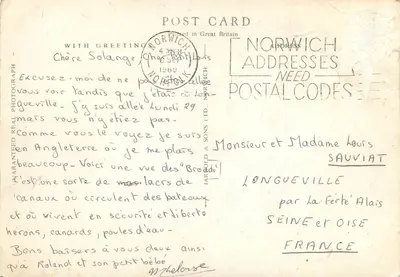 POST CARD
WITH GREETINGS
ADDRESS
Printed in Great Britain
NORWICH
NORFOLK
1960
NORWICH
ADDRESSES
NEED
POSTAL CODES
GUARANTEED REAL PHOTOGRAPH
JARROLD & SONS LTD. NORWICH
Chère Solange, Cher Louis
Excusez-moi de ne pas allée
vous voir tandis que j'étais à Lon-
gueville. J'y suis allée Lundi 29
mais vous n'y étiez pas.
Comme vous le voyez je suis
en Angleterre où je me plais
beaucoup. Voici une vue des "Broads"
C'est une sorte de lacs
canaux où circulent des bateaux
et où vivent en sécurité et liberté
hérons, canards, poules d'eau.
Bons baisers à vous deux ainsi
qu'à Roland et son petit bébé
Monsieur et Madame Louis
SAUVIAT
LONGUEVILLE
par La Ferté Alais
SEINE et OISE
FRANCE